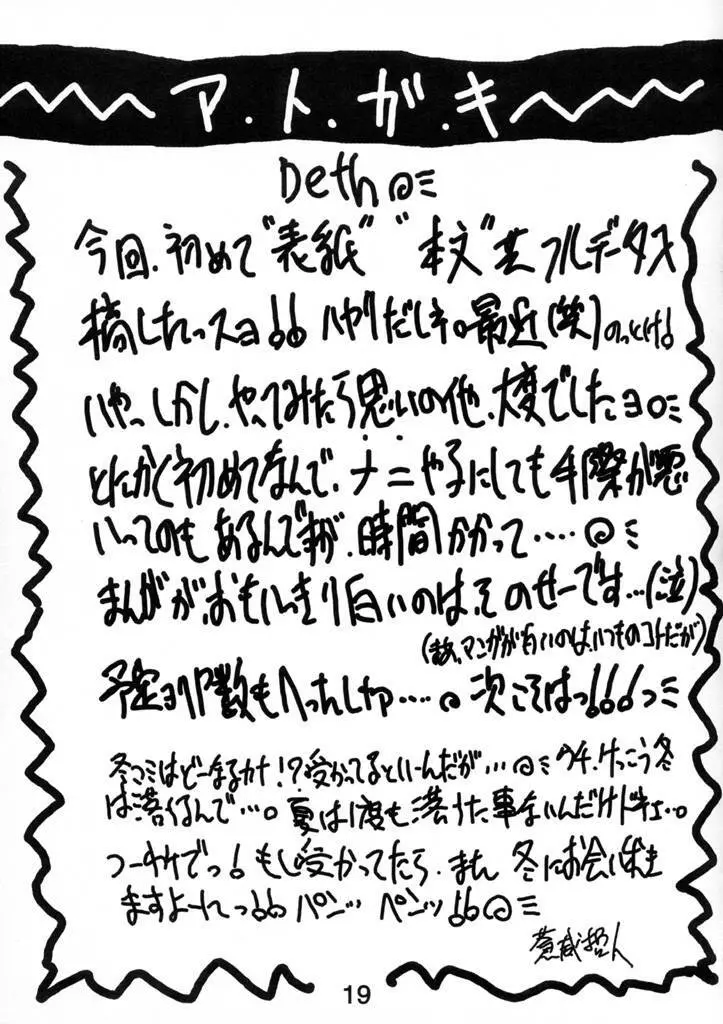 ア.ト.ガ.キ
Deth
今回、初めて"表紙" "本文"共フルデータ入
稿したっスョ!! ハヤリだしネ。最近(笑)のっとけ!
いやっしかし、やってみたら思いの他、大変でしたヨ
とにかく初めてなんで、ナニやるにしても手際が悪
いってのもあるんですが、時間かかって‥‥
まんがが、おもいっきり白いのは、そのせーです…(泣)
(まあ、マンガが白いのは、いつものコトだが)
予定ョりP数もへっちゃし‥‥。次こそはっ!!!っ
冬コミはどーなるカナ!?受かってるといーんだが…ウチ、けっこう冬
は落くるんで…。夏は1度も落ちた事ないんだけドネェ…。
つーわけでっ!もし受かってたら、また 冬にお会いしま
ますよーれっ!! パンッ ペンッ!!
蒼威哲人
19